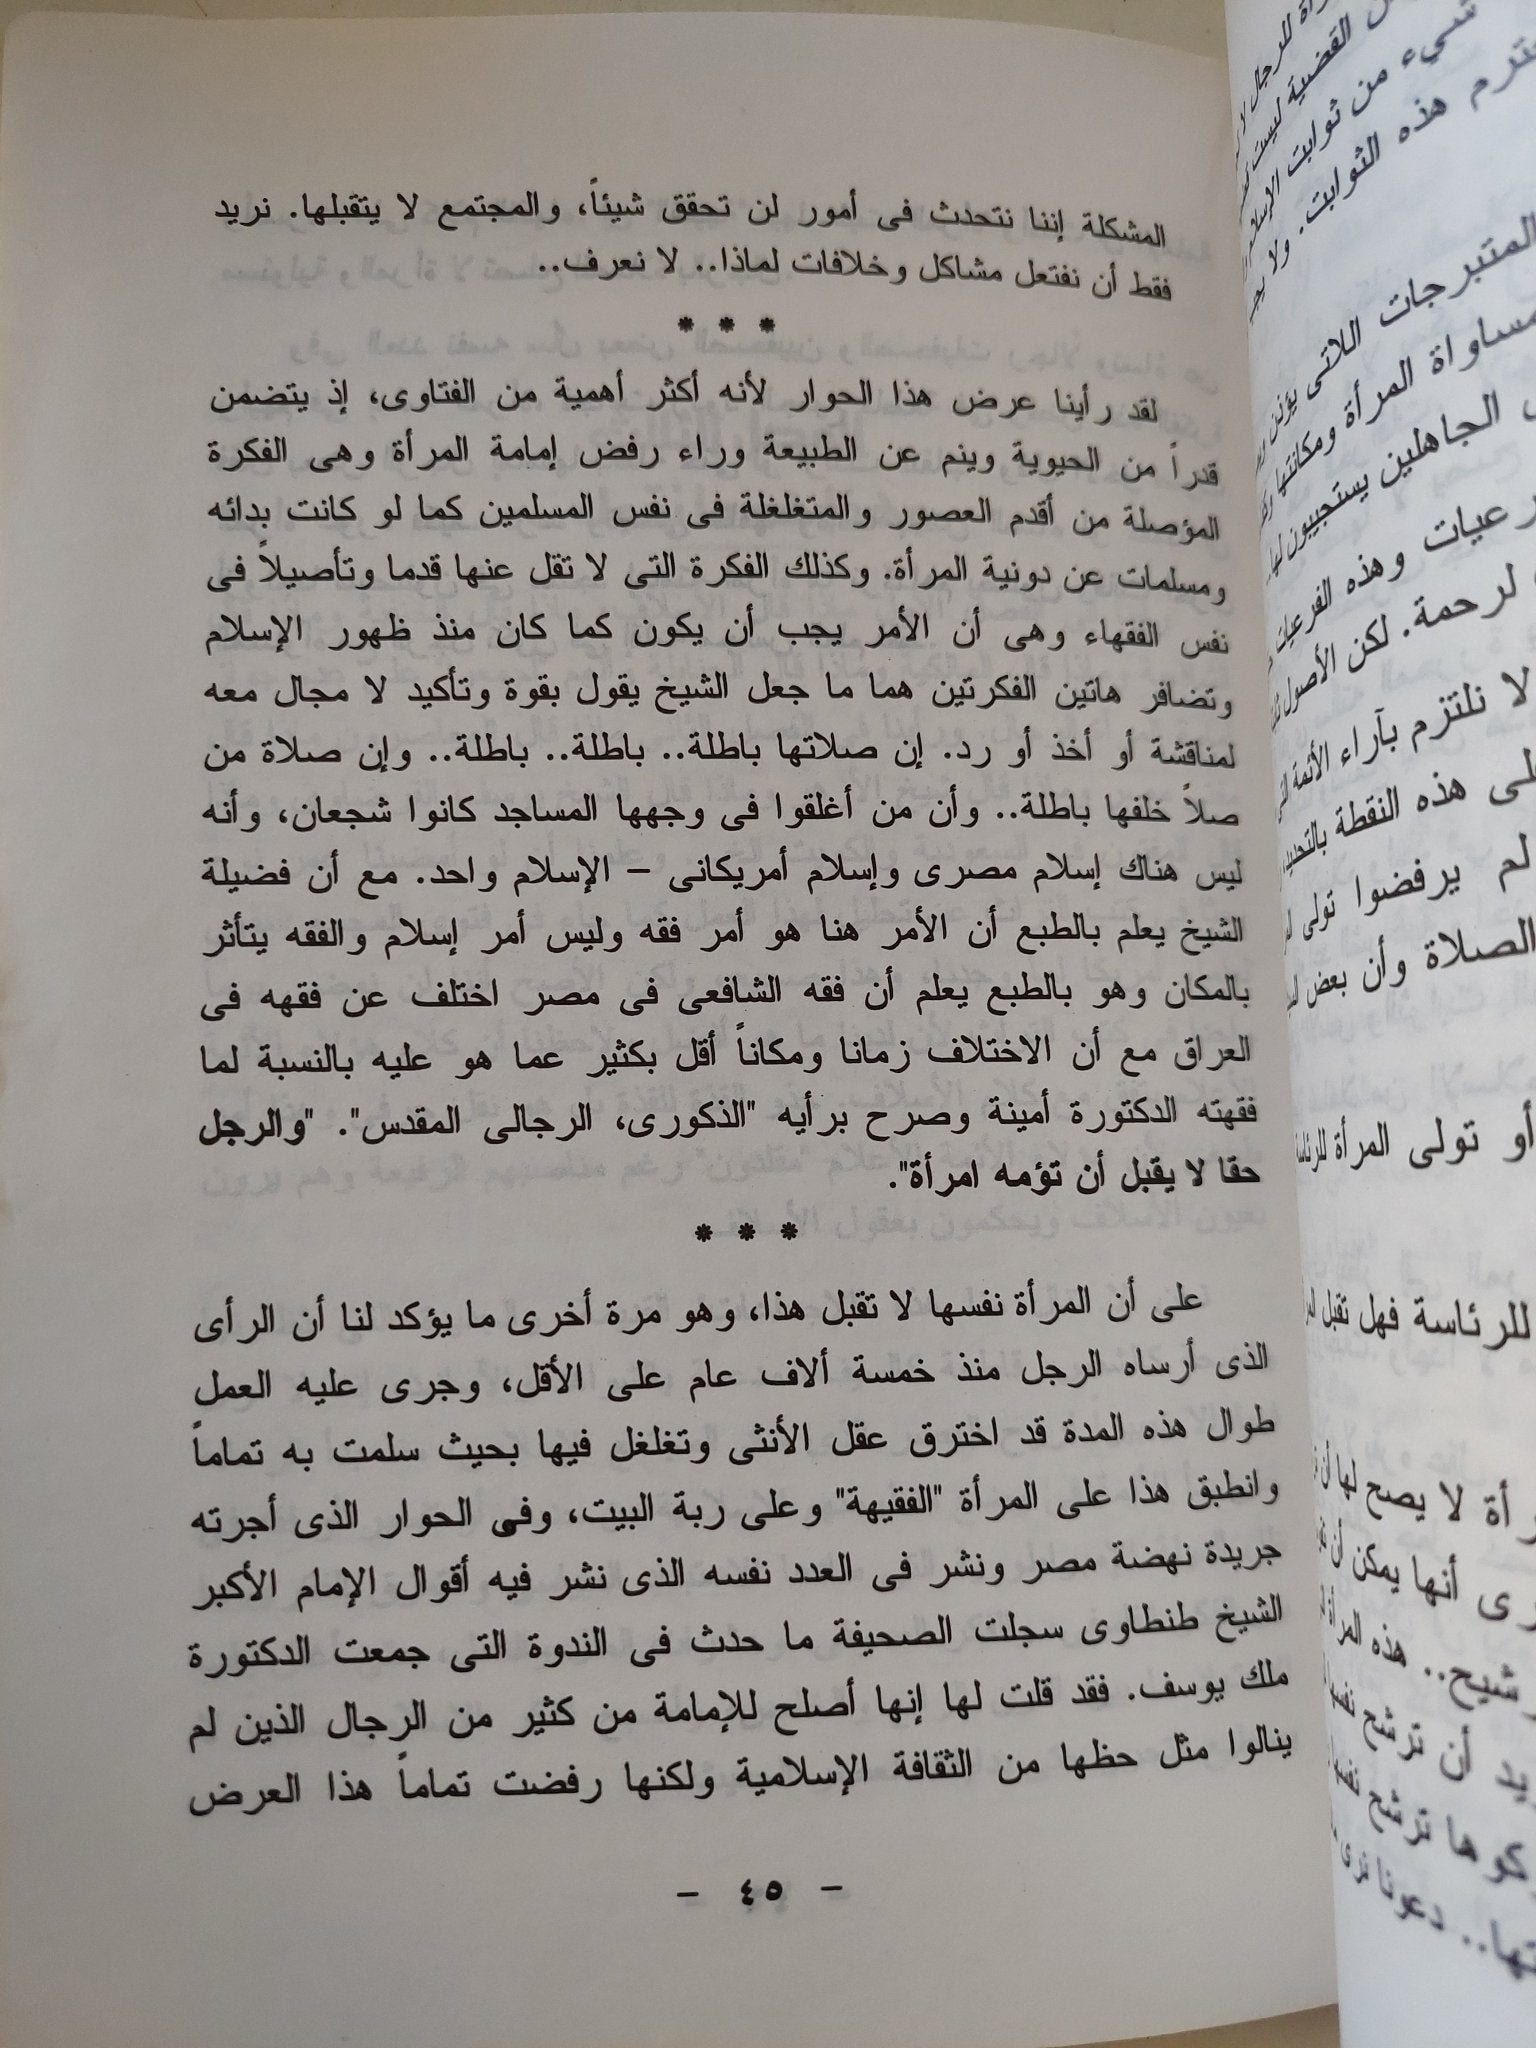 المشكلة إننا نتحدث فى أمور لن تحقق شيئاً، والمجتمع لا يتقبلها. نريد
فقط أن نفتعل مشاكل وخلافات لماذا.. لا نعرف..
* * *
لقد رأينا عرض هذا الحوار لأنه أكثر أهمية من الفتاوى، إذ يتضمن
قدراً من الحيوية وينم عن الطبيعة وراء رفض إمامة المرأة وهى الفكرة
المؤصلة من أقدم العصور والمتغلغلة فى نفس المسلمين كما لو كانت بدائه
ومسلمات عن دونية المرأة. وكذلك الفكرة التى لا تقل عنها قدما وتأصيلاً فى
نفس الفقهاء وهى أن الأمر يجب أن يكون كما كان منذ ظهور الإسلام
وتضافر هاتين الفكرتين هما ما جعل الشيخ يقول بقوة وتأكيد لا مجال معه
لمناقشة أو أخذ أو رد. إن صلاتها باطلة.. باطلة.. باطلة.. وإن صلاة من
صلاً خلفها باطلة.. وأن من أغلقوا فى وجهها المساجد كانوا شجعان، وأنه
ليس هناك إسلام مصرى وإسلام أمريكانى – الإسلام واحد. مع أن فضيلة
الشيخ يعلم بالطبع أن الأمر هنا هو أمر فقه وليس أمر إسلام والفقه يتأثر
بالمكان وهو بالطبع يعلم أن فقه الشافعى فى مصر اختلف عن فقهه فى
العراق مع أن الاختلاف زمانا ومكاناً أقل بكثير عما هو عليه بالنسبة لما
فقهته الدكتورة أمينة وصرح برأيه "الذكورى، الرجالى المقدس". "والرجل
حقا لا يقبل أن تؤمه امرأة".
* * *
على أن المرأة نفسها لا تقبل هذا، وهو مرة أخرى ما يؤكد لنا أن الرأى
الذى أرساه الرجل منذ خمسة ألاف عام على الأقل، وجرى عليه العمل
طوال هذه المدة قد اخترق عقل الأنثى وتغلغل فيها بحيث سلمت به تماماً
وانطبق هذا على المرأة "الفقيهة" وعلى ربة البيت، وفى الحوار الذى أجرته
جريدة نهضة مصر ونشر فى العدد نفسه الذى نشر فيه أقوال الإمام الأكبر
الشيخ طنطاوى سجلت الصحيفة ما حدث فى الندوة التى جمعت الدكتورة
ملك يوسف. فقد قلت لها إنها أصلح للإمامة من كثير من الرجال الذين لم
ينالوا مثل حظها من الثقافة الإسلامية ولكنها رفضت تماماً هذا العرض
– ٤٥ –
شيء من ثوابت
هذه الثوابت. ولا
المتبرجات اللاتى
مساواة المرأة ومكانتها
الجاهلين يستجيبون لها
وهذه الفرعيات
لرحمة. لكن الأصول
لا نلتزم بآراء الأئمة
هذه النقطة بالتحديد
لم يرفضوا تولى
الصلاة وأن بعض
أو تولى المرأة للرئاسة
للرئاسة فهل تقبل
لا يصح لها أن
أنها يمكن أن
هذه المرأة
أن ترشح نفسها
ترشح نفسها
دعونا نرى